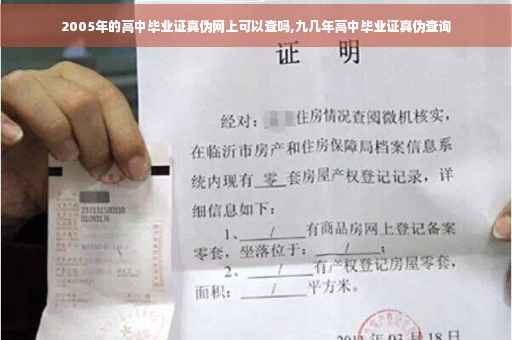 2005年的高中毕业证真伪网上可以查吗,九几年高中毕业证真伪查询
证 明
经对：住房情况查阅微机核实，
在临沂市房产和住房保障局档案信息系
统内现有 零 套房屋产权登记记录，详
细信息如下：
1、 / 有商品房网上登记备案
零套，坐落位于： / ；
2、 / 有产权登记房屋零套，
面积： / 平方米。
03月18日